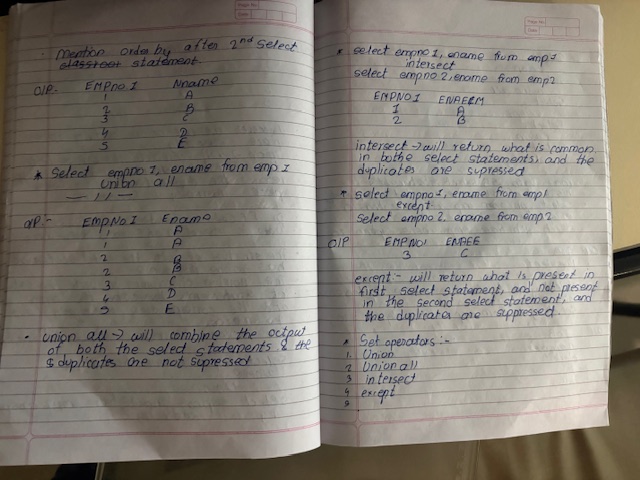 Mention order by after 2nd select
statement.
O/P. EMPno1 Nname
1 A
2 B
3 C
4 D
5 E
* Select empno1, ename from emp1
union all
— ,, —
O/P:- EmpNo1 Ename
1 A
1 A
2 B
2 B
3 C
4 D
5 E
• union all → will combine the output
of both the select statements & the
duplicates are not supressed
* select empno1, ename from emp1
intersect
select empno2, ename from emp2
EMPNO1
1 A
2 B
intersect → will return what is common
in both select statements, and the
duplicates are supressed
* select empno1, ename from emp1
except
select empno2, ename from emp2
O/P EMPNO1
3 C
except - will return what is present in
first select statement, and not present
in the second select statement, and
the duplicates are suppressed
* Set operators :-
1. Union
2 Union all
3 intersect
4 except
5